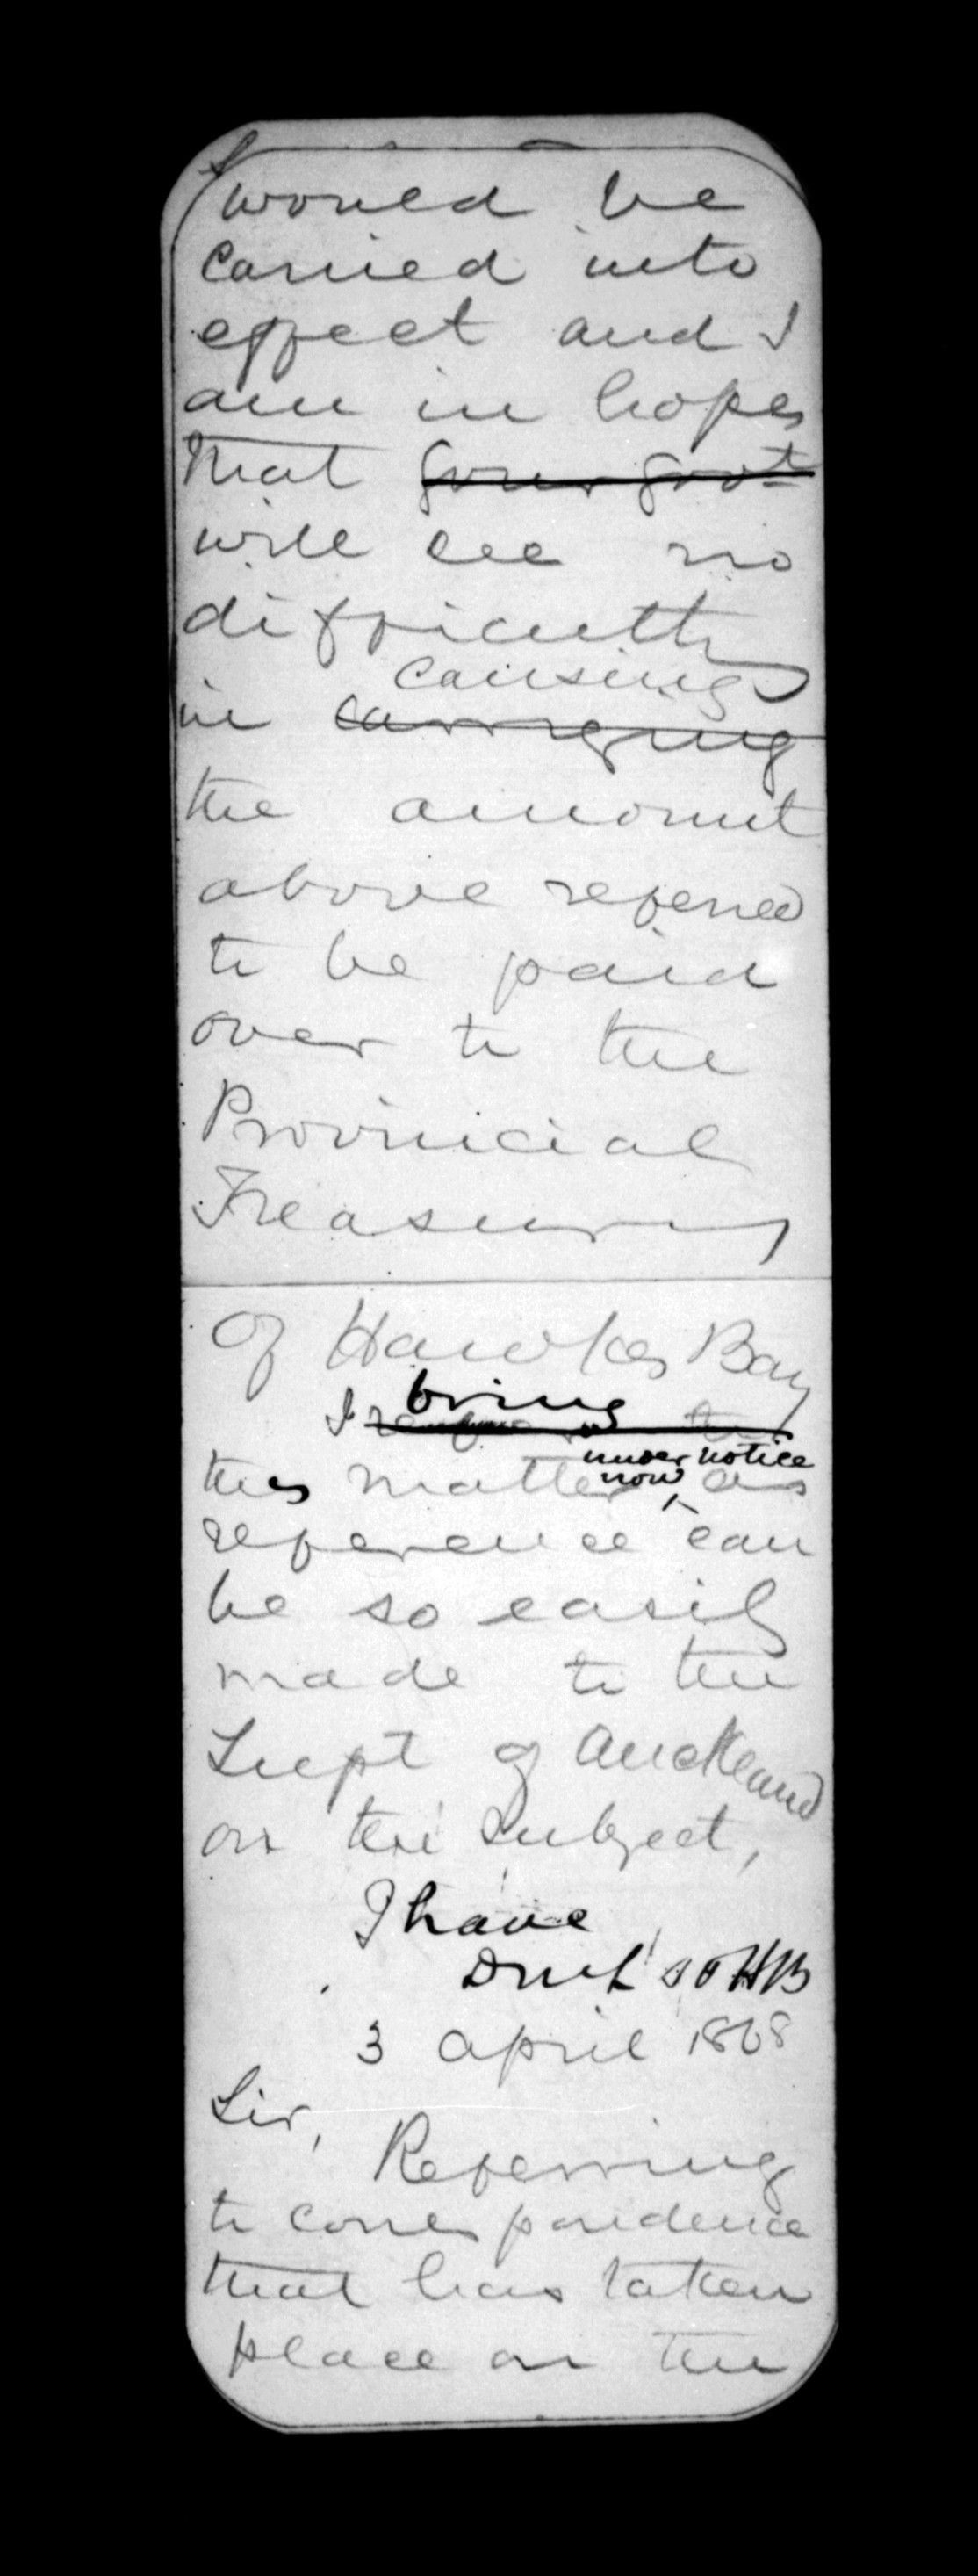 would be
carried into
effect and I
am in hopes
that your Govt
will see no
difficulty
causing
in carrying
the amount
above referred
to be paid
over to the
Provincial
Treasury
Of Hawkes Bay
bring
I
under notice
this matter now as
reference can
be so easily
made to the
Supt of Auckland
on the subject,
I have
S O HB
3 April 1868
Sir,
Referring
to correspondence
that has taken
place on the